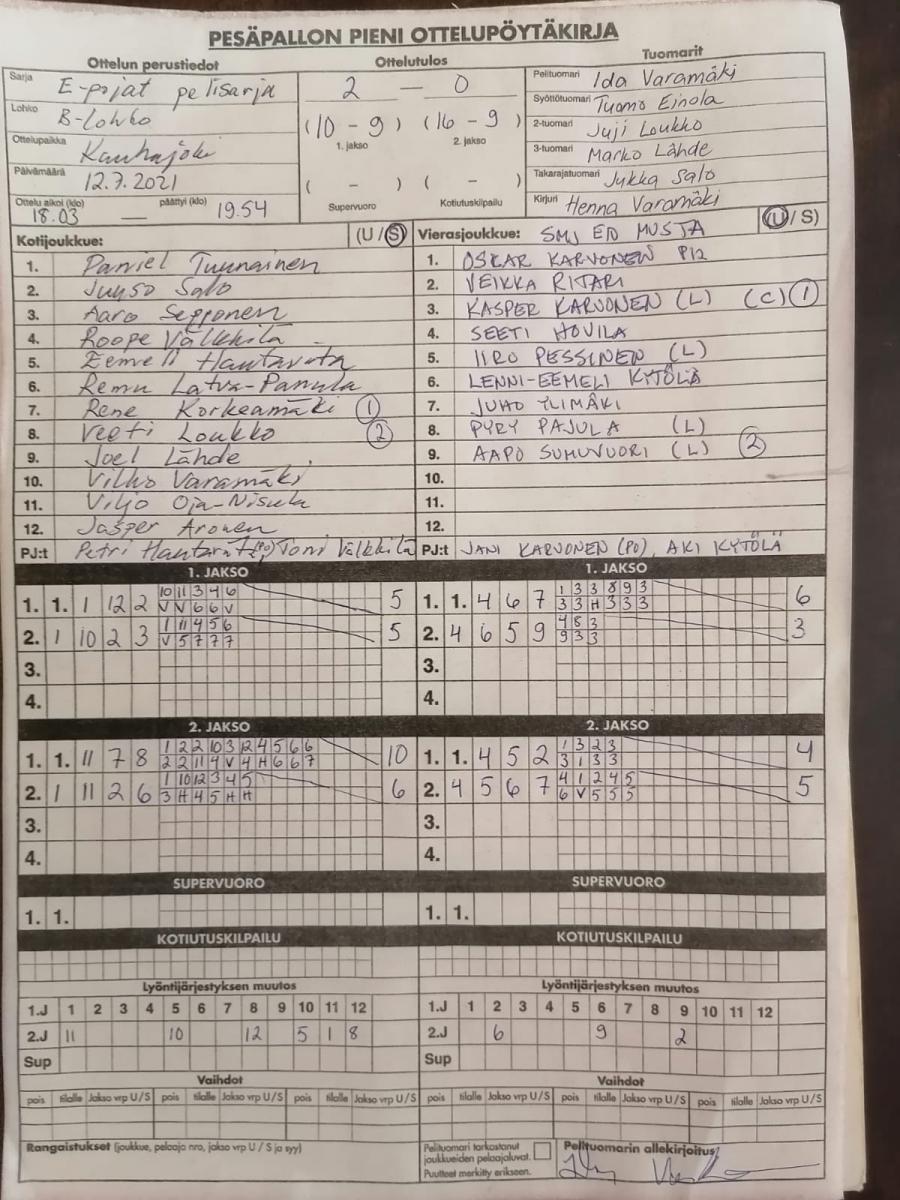 PESÄPALLON PIENI OTTELUPÖYTÄKIRJA
Ottelun perustiedot
Sarja E-pojat pelisarja
Lohko B-lohko
Ottelupaikka Kauhajoki
Päivämäärä 12.7.2021
Ottelu alkoi (klo) 18.03 — päättyi (klo) 19.54
Ottelutulos
2 — 0
(10 - 9) (16 - 9)
1. jakso 2. jakso
( - ) ( - )
Supervuoro Kotiutuskilpailu
Tuomarit
Pelituomari Ida Varamäki
Syöttötuomari Tuomo Einola
2-tuomari Juji Loukko
3-tuomari Marko Lähde
Takarajatuomari Jukka Salo
Kirjuri Henna Varamäki
Kotijoukkue: (U / S)
1. Daniel Tuunainen
2. Juuso Salo
3. Aaro Sepponen
4. Roope Välkkilä
5. Eemeli Hautarata
6. Remu Latva-Panula
7. Rene Korkeamäki 1
8. Veeti Loukko 2
9. Joel Lähde
10. Vilho Varamäki
11. Viljo Oja-Nisula
12. Jasper Aronen
PJ:t Petri (PO) Toni Välkkilä
Vierasjoukkue: SMJ ED MUSTA (U / S)
1. OSKAR KARVONEN P12
2. VEIKKA RITARI
3. KASPER KARVONEN (L) (C) 1
4. SEETI HOVILA
5. IIRO PESSINEN (L)
6. LENNI-EEMELI KYTÖLÄ
7. JUHO YLIMÄKI
8. PYRY PAJULA (L)
9. AAPO SUMUVUORI (L) 2
10.
11.
12.
PJ:t JANI KARVONEN (PO), AKI KYTÖLÄ
1. JAKSO
1. 1. 1 12 2 10 11 3 4 6 5
V V 6 6 V
2. 1 10 2 3 1 11 4 5 6 5
V 5 7 7 7
3.
4.
1. JAKSO
1. 1. 4 6 7 1 3 3 8 9 3 6
3 3 H 3 3 3
2. 4 6 5 9 4 8 3 3
9 3 3
3.
4.
2. JAKSO
1. 1. 11 7 8 1 2 2 10 3 12 4 5 6 6 10
2 2 11 4 V 4 H 6 6 7
2. 1 11 2 6 1 10 12 3 4 5 6
3 H 4 5 H H
3.
4.
2. JAKSO
1. 1. 4 5 2 1 3 2 3 4
3 1 3 3
2. 4 5 6 7 4 1 2 4 5 5
6 V 5 5 5
3.
4.
SUPERVUORO
1. 1.
SUPERVUORO
1. 1.
KOTIUTUSKILPAILU
KOTIUTUSKILPAILU
Lyöntijärjestyksen muutos
1.J 1 2 3 4 5 6 7 8 9 10 11 12
2.J 11 10 12 5 1 8
Sup
Lyöntijärjestyksen muutos
1.J 1 2 3 4 5 6 7 8 9 10 11 12
2.J 6 9 2
Sup
Vaihdot
pois tilalle Jakso vrp U/S pois tilalle Jakso vrp U/S pois tilalle Jakso vrp U/S
Vaihdot
pois tilalle Jakso vrp U/S pois tilalle Jakso vrp U/S pois tilalle Jakso vrp U/S
Rangaistukset (joukkue, pelaaja nro, jakso vrp U / S ja syy)
Pelituomari tarkastanut
joukkueiden pelaajaluvat.
Puutteet merkitty erikseen.
Pelituomarin allekirjoitus